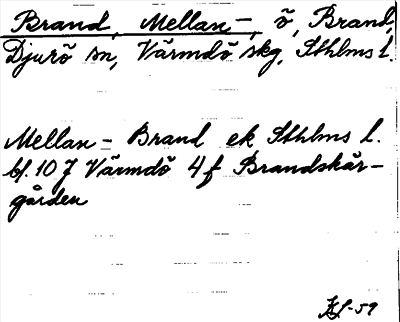 Brand, Mellan-, ö, Brand,
Djurö sn, Värmdö skg, Sthlms l.
Mellan-Brand ek Sthlms l.
bl. 107 Värmdö 4f Brandskär-
gården
-59